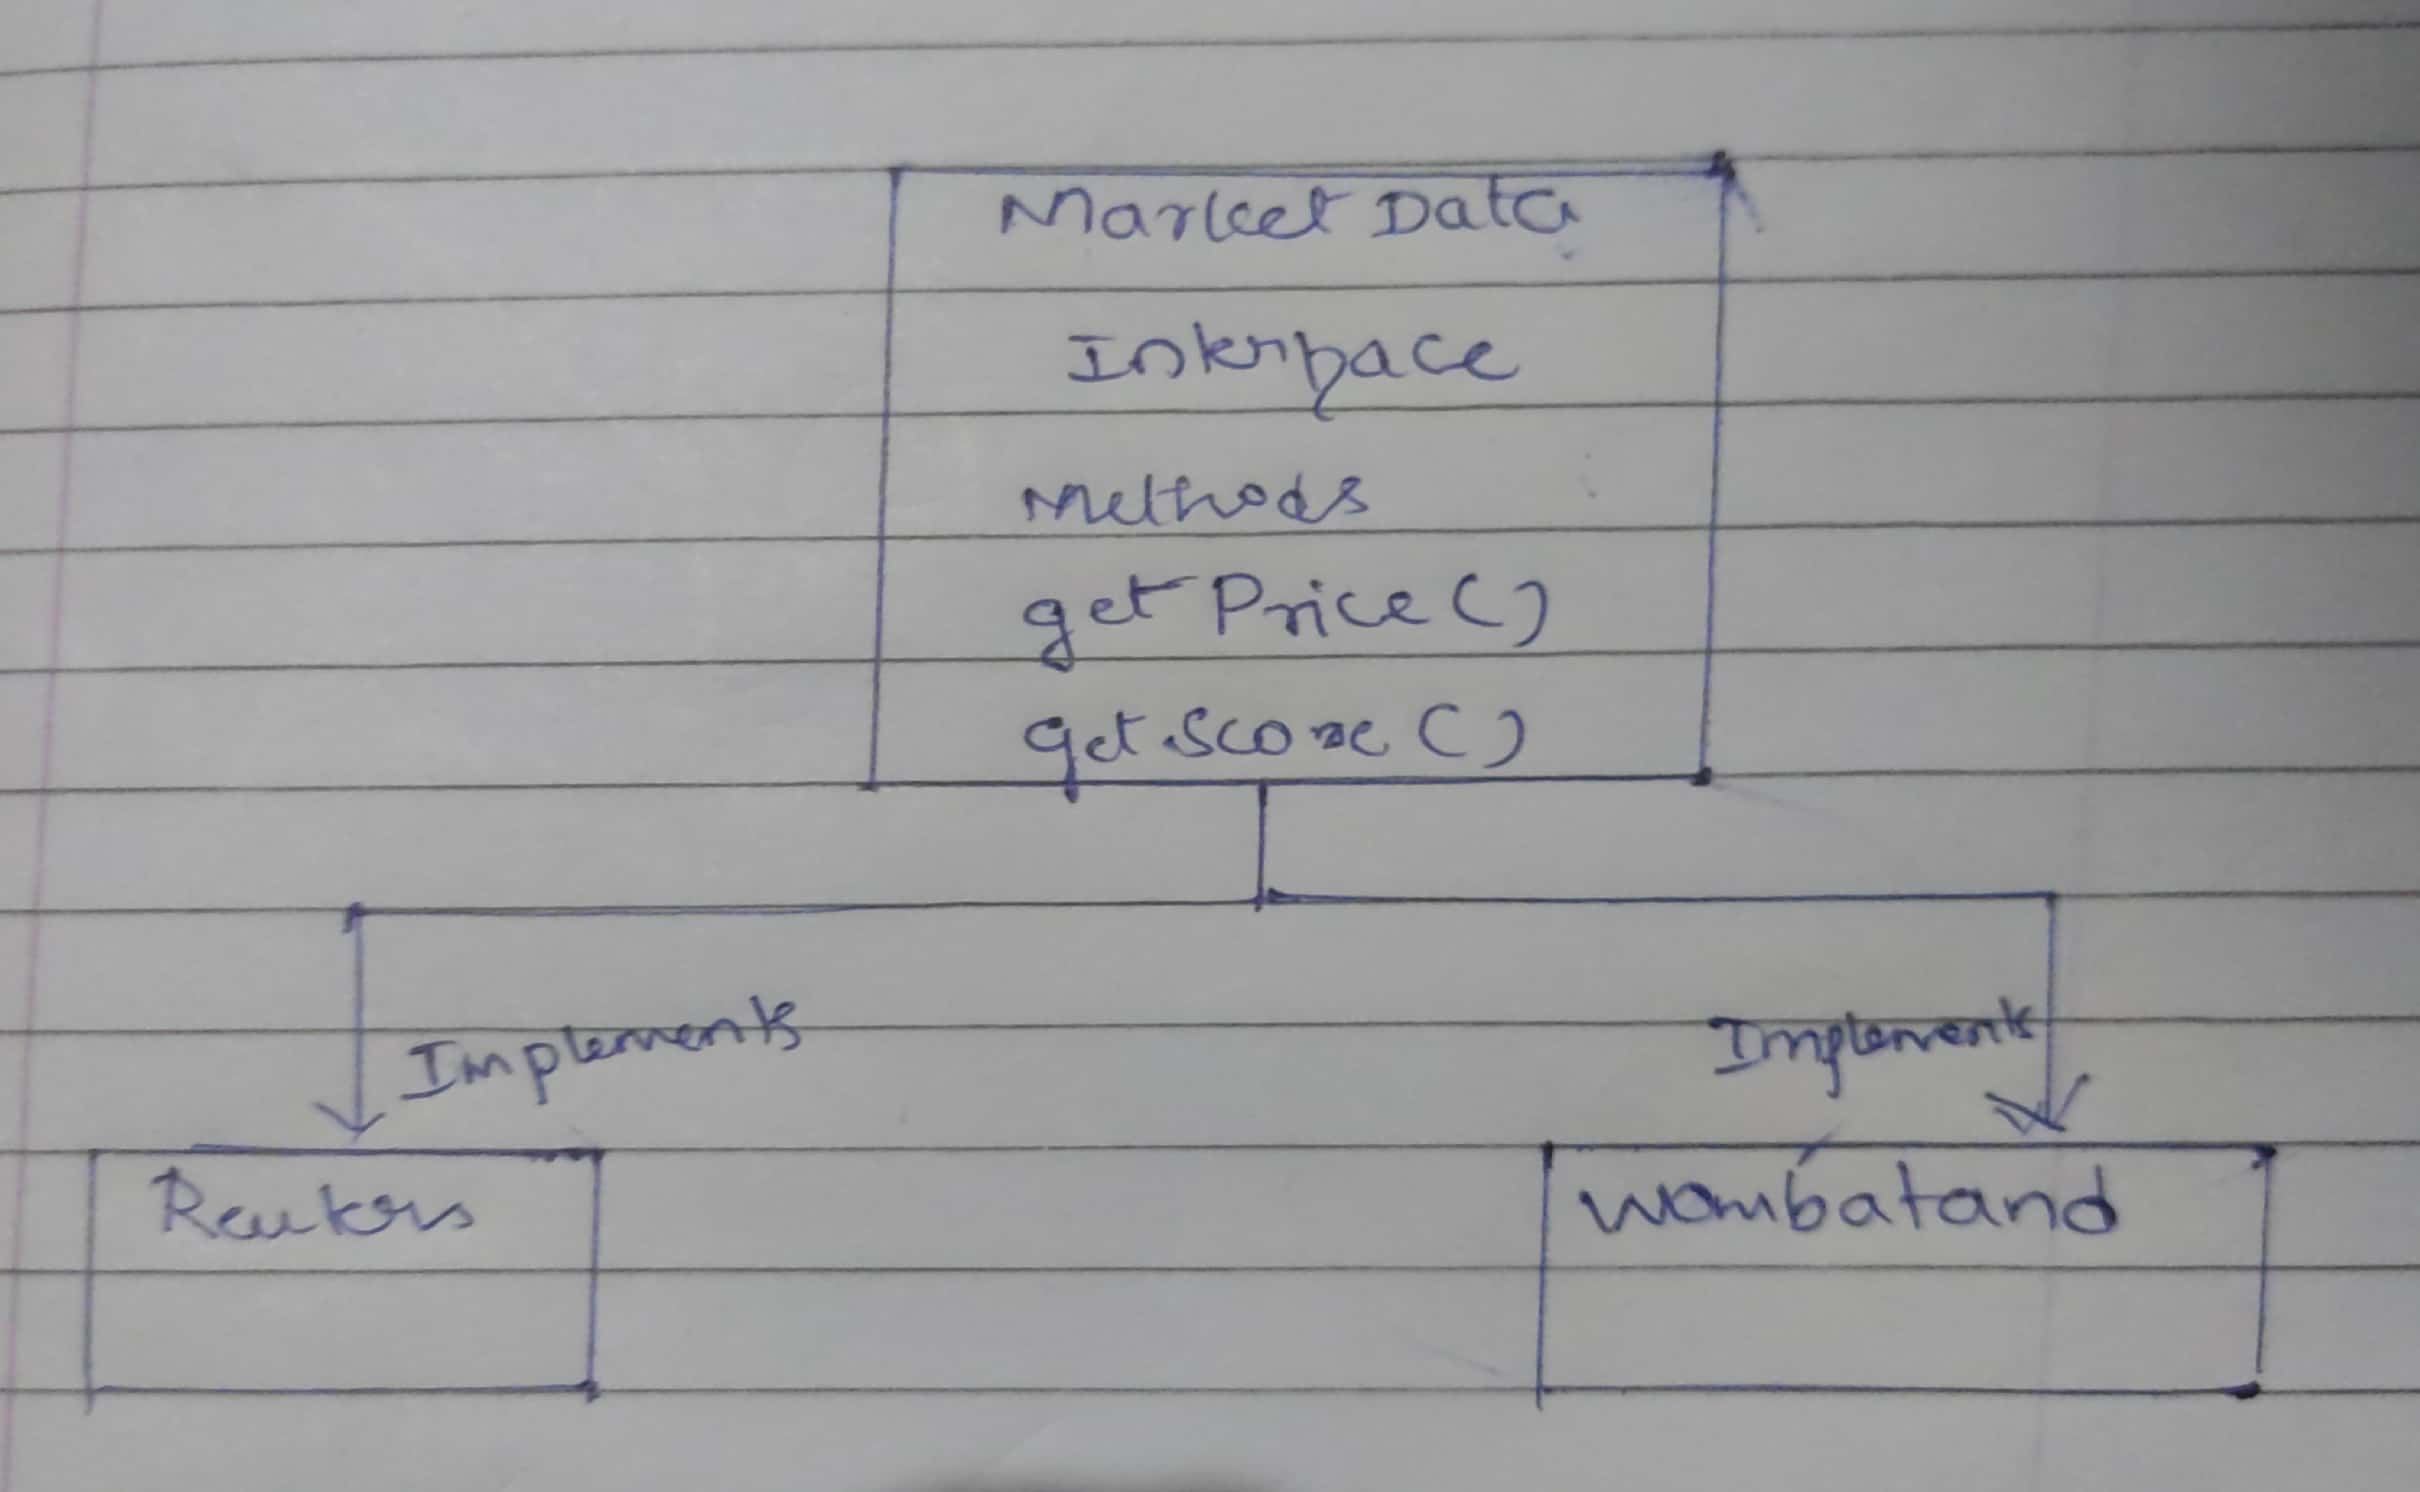 Market Data
Interface
Methods
get Price ( )
get Score ( )
Implements
Implements
Reuters
Wombatand